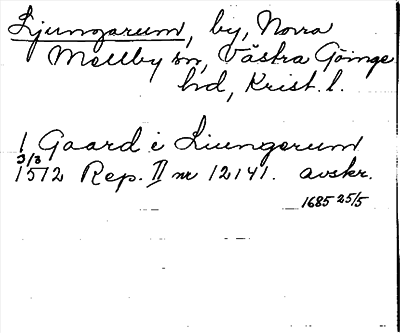 Ljungarum, by, Norra
Mellby sn, Västra Göinge
hd, Krist. l.
1 Gaard i Liungerum
3/3
1512 Rep. II nr 12141. avskr.
1685 25/5